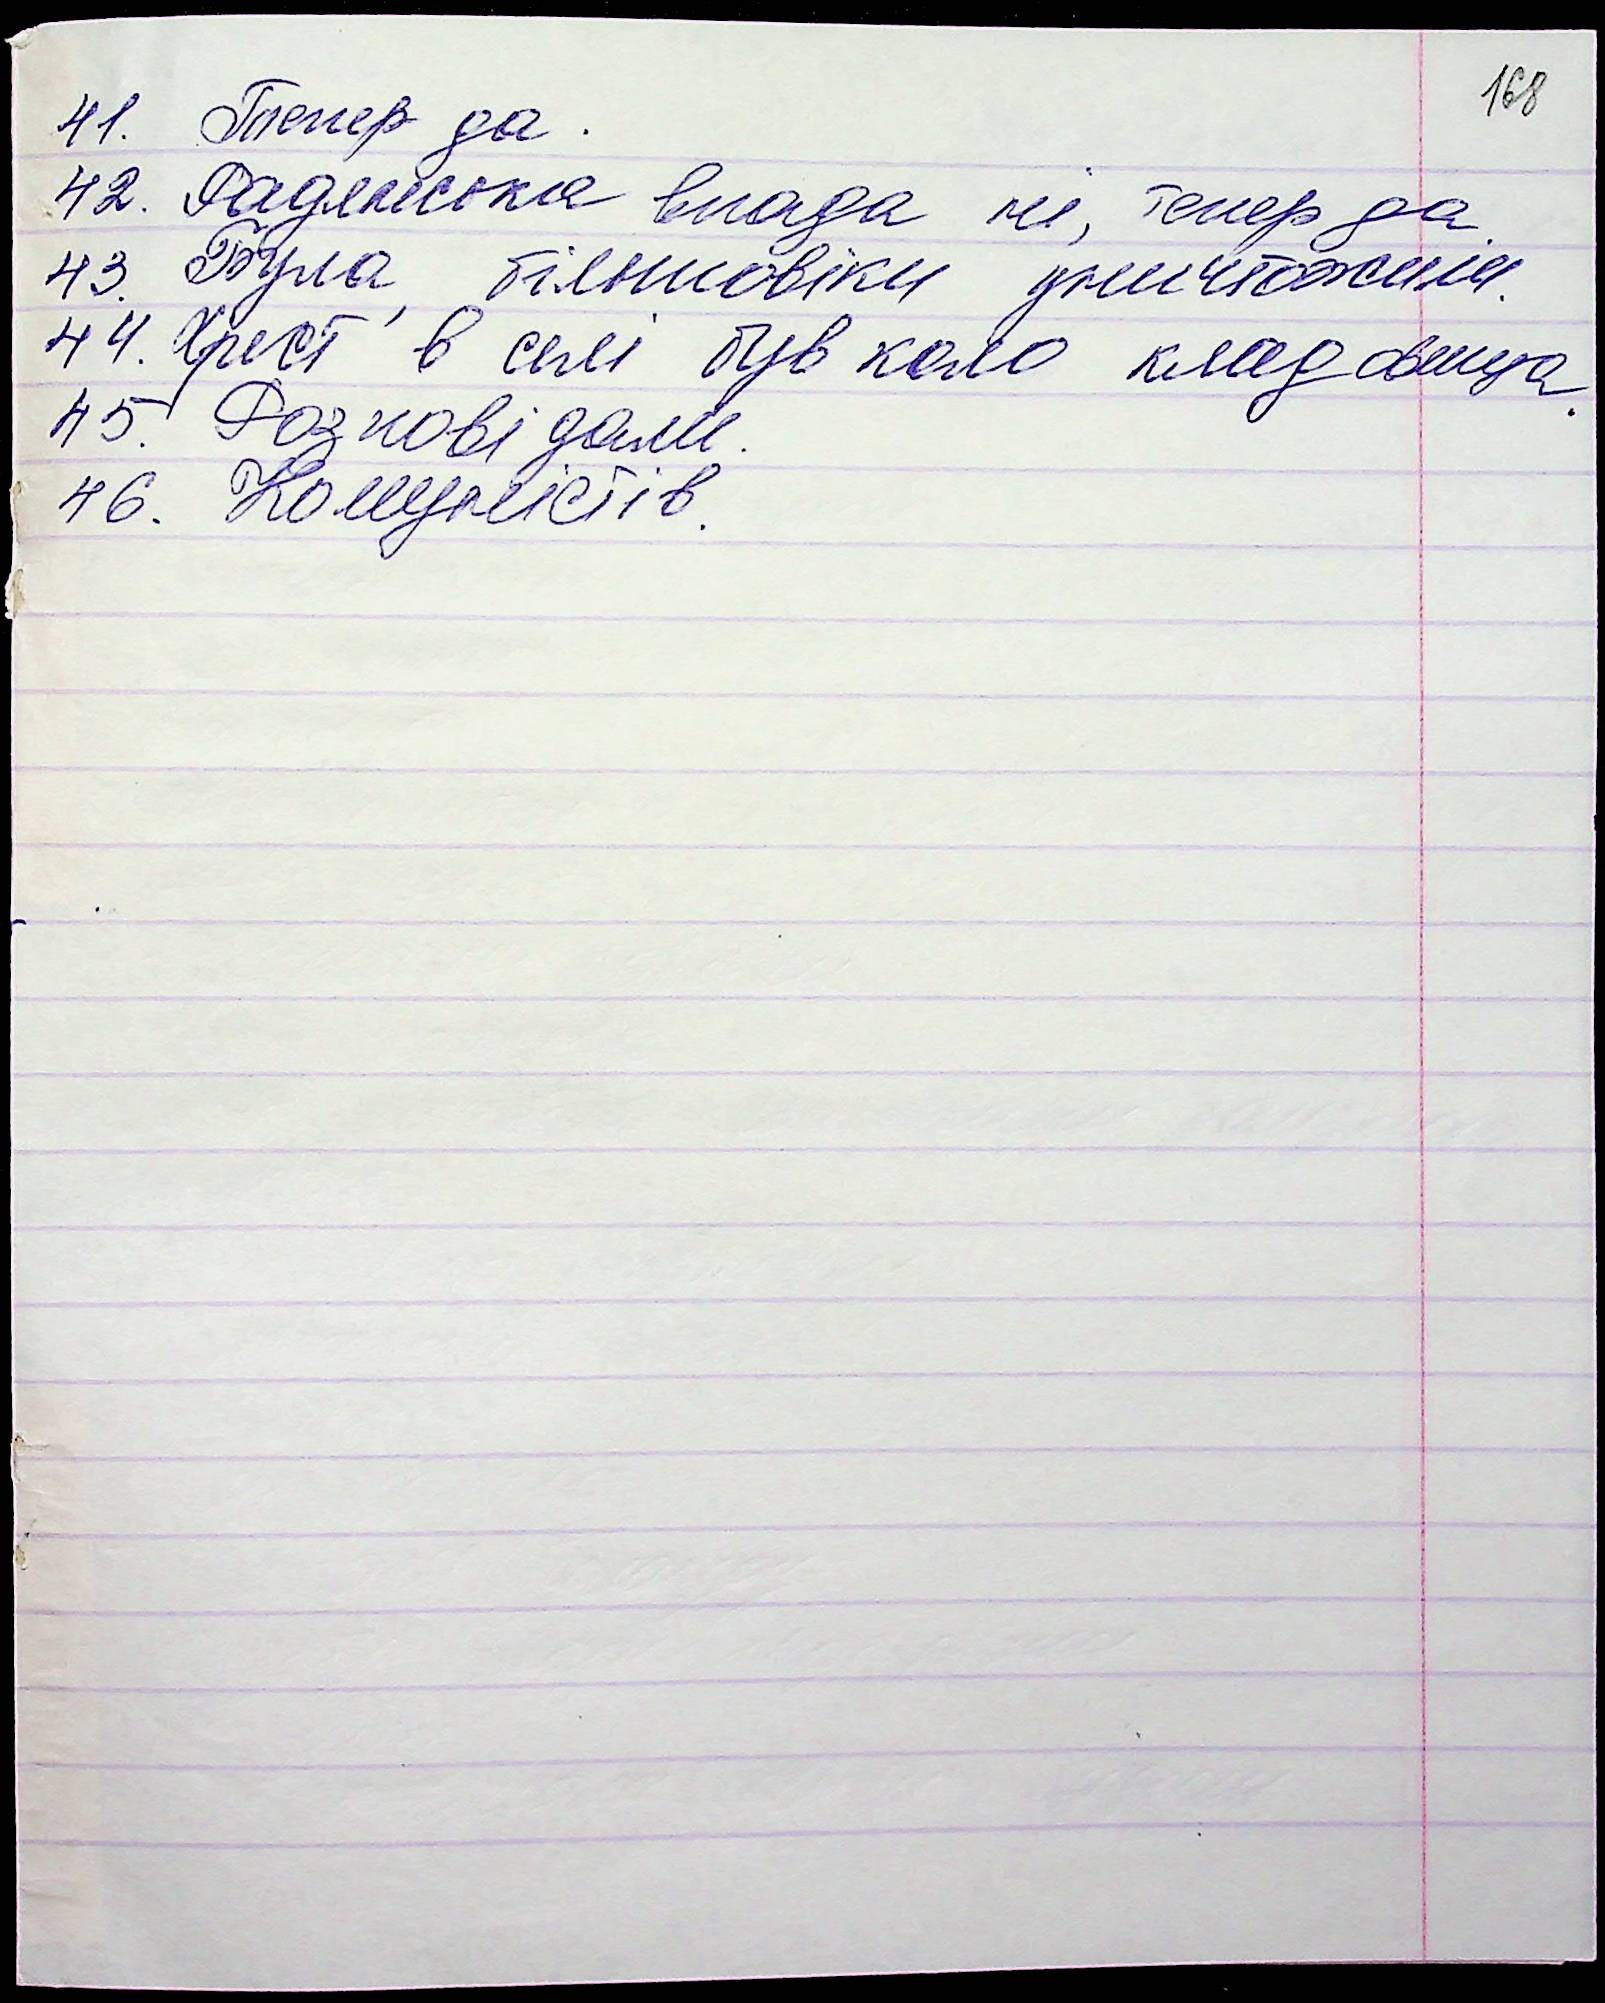 168
41. Тепер да.
42. Радянська влада ні, тепер да.
43. Була, більшовіки уничтожили.
44. Хрест в селі був коло кладовища.
45. Розповідали.
46. Комуністів.